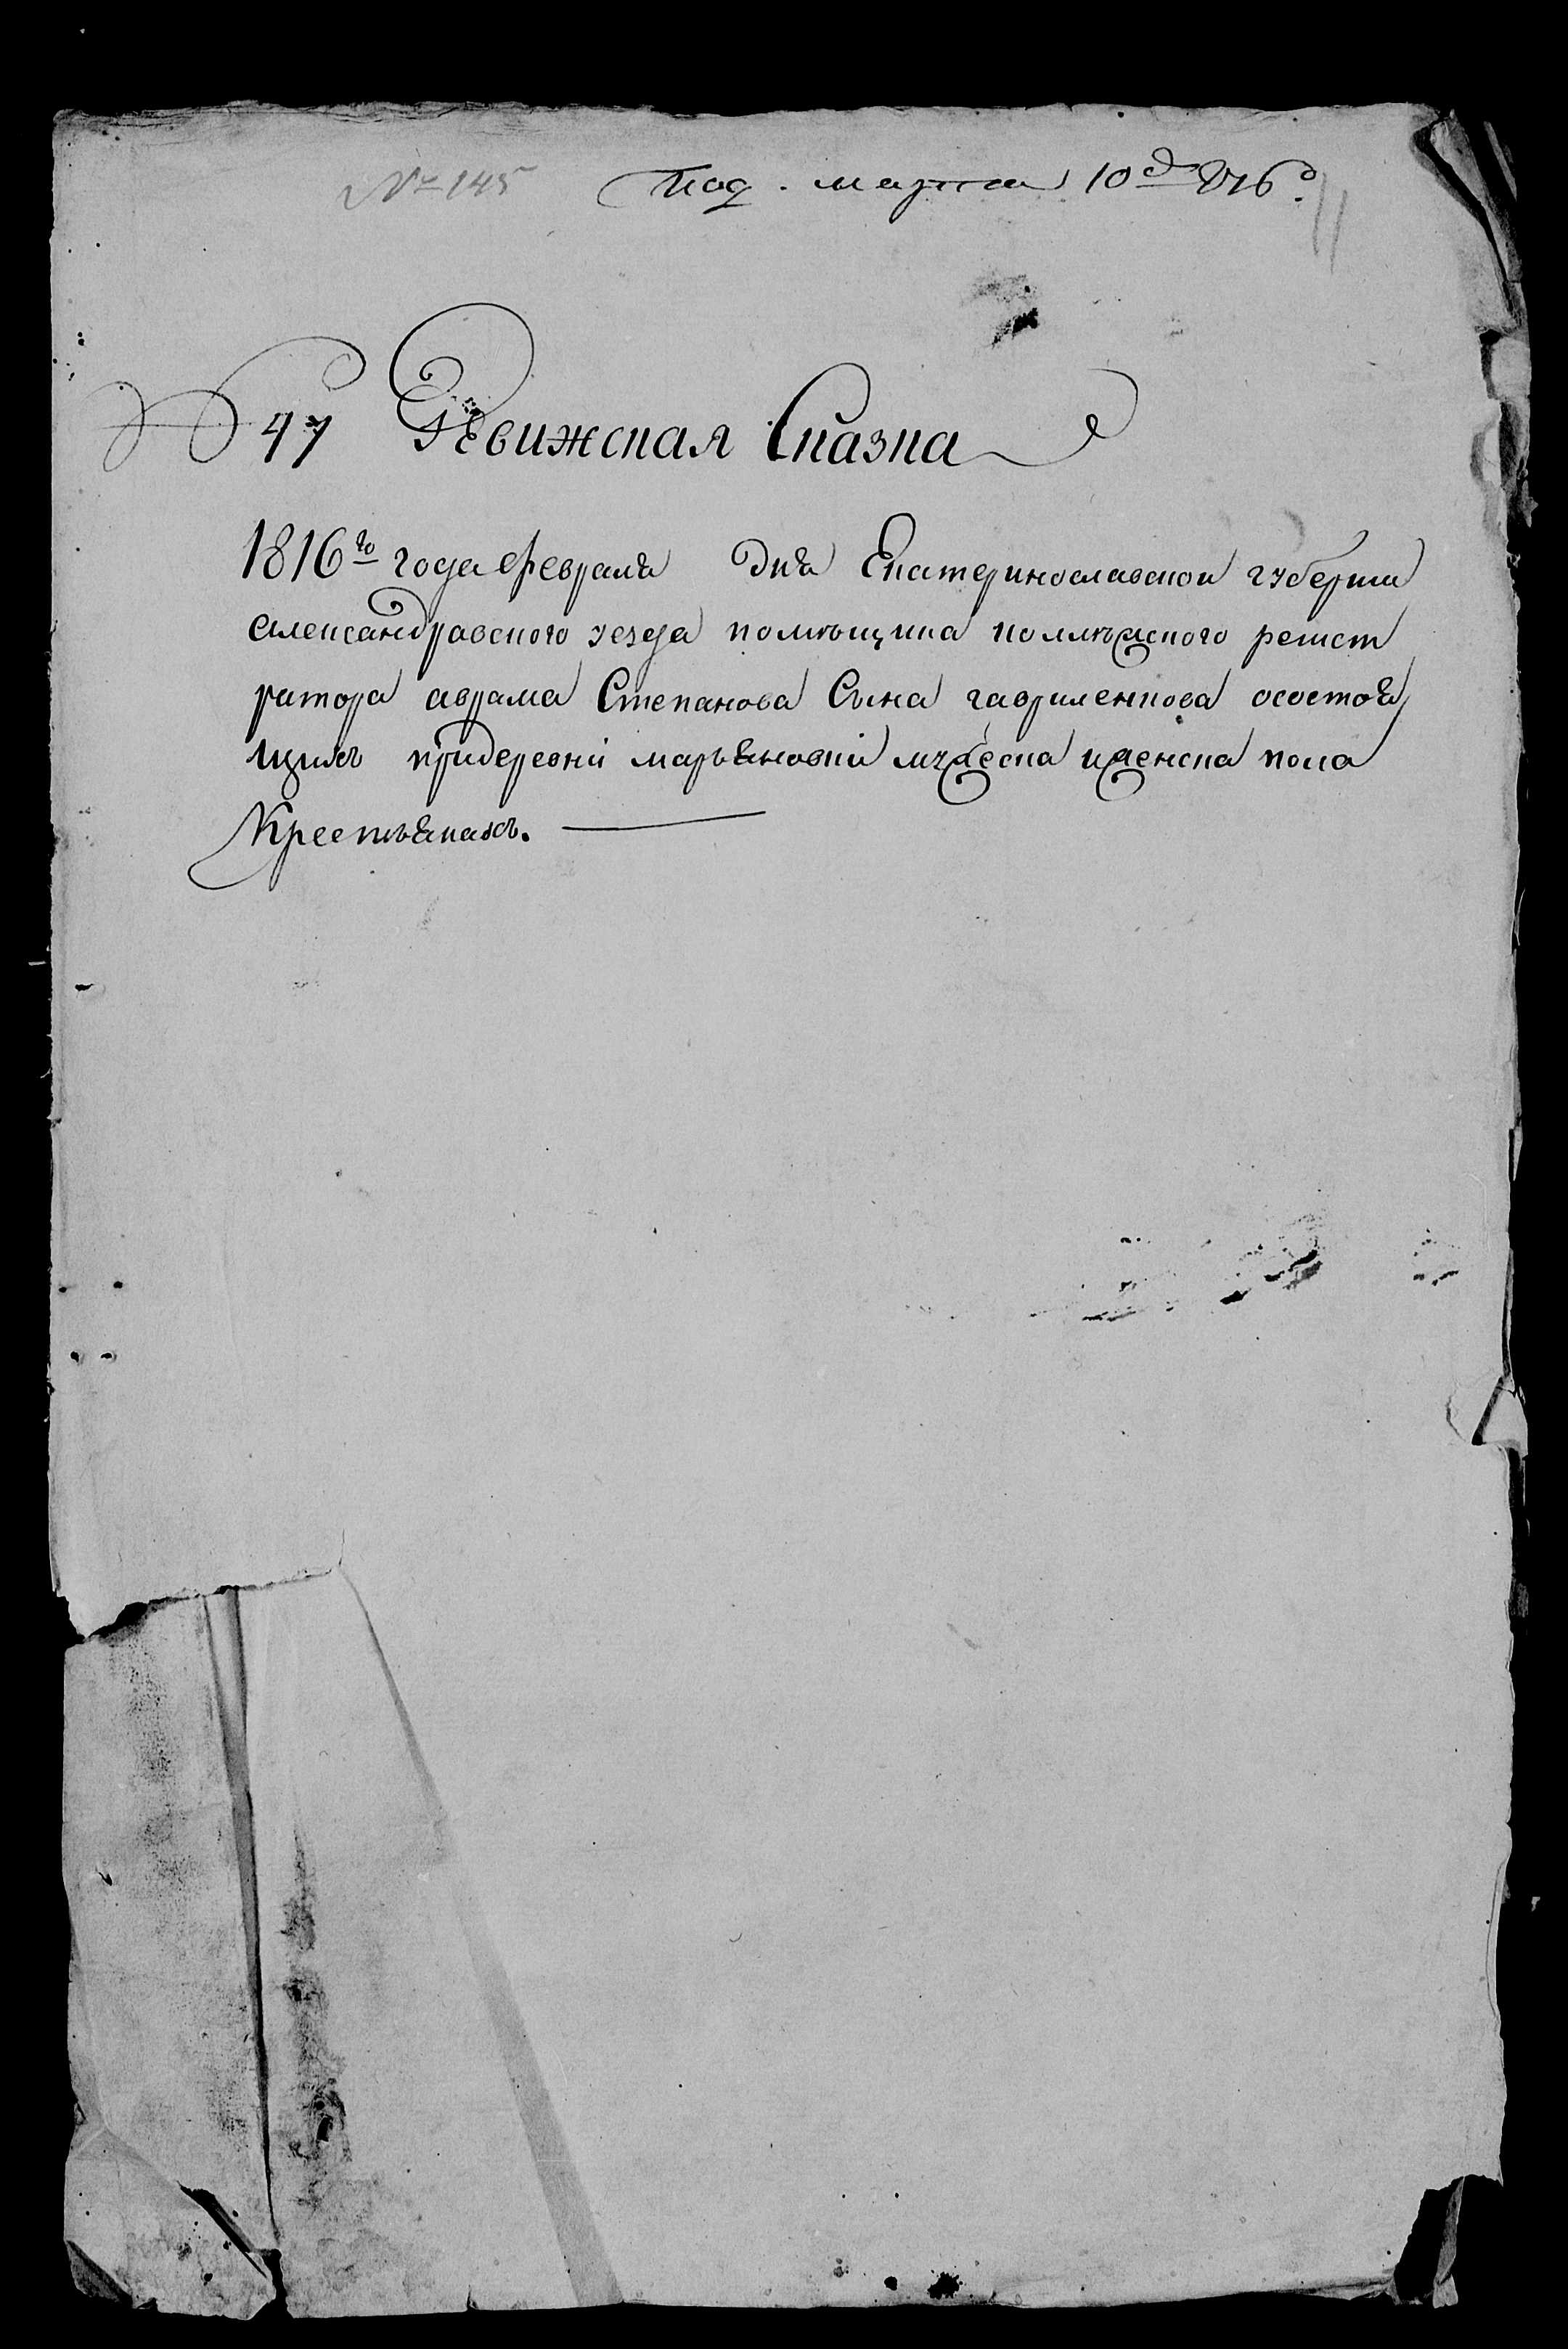 № 145 Под. марта 10д 816д.
№ 47 Ревижская Сказка
1816го года февраля дня Екатеринославской губернии
александравского уезда помѣщика коллѣжского регист
ратора аврама Степанова Сына гавриленкова осостоя
щихъ придеревни марьяновки мужеска иженска пола
Крестьянахъ.